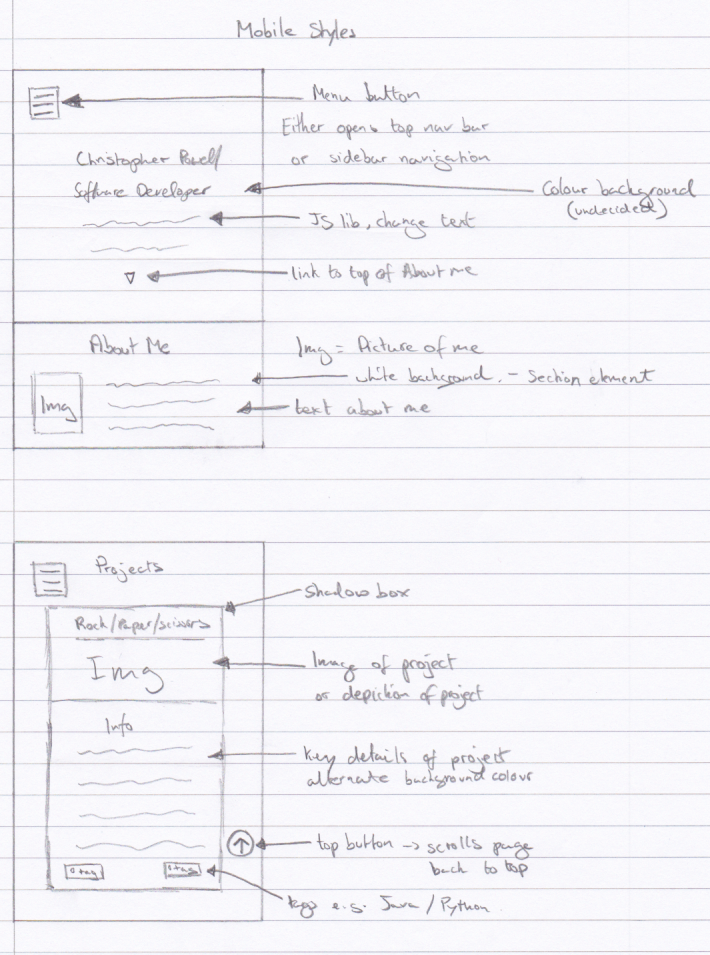 Mobile Styles
Menu button
Either opens top nav bar
or sidebar navigation
Christopher Powell
Software Developer
Colour background
(undecided)
JS lib, change text
link to top of About me
About Me
Img
Img = Picture of me
white background. - Section element
text about me
Projects
Shadow box
Rock/Paper/scissors
Img
Image of project
or depiction of project
Info
key details of project
alternate background colour
top button → scrolls page
back to top
tag
tag
tags e.g. Java / Python